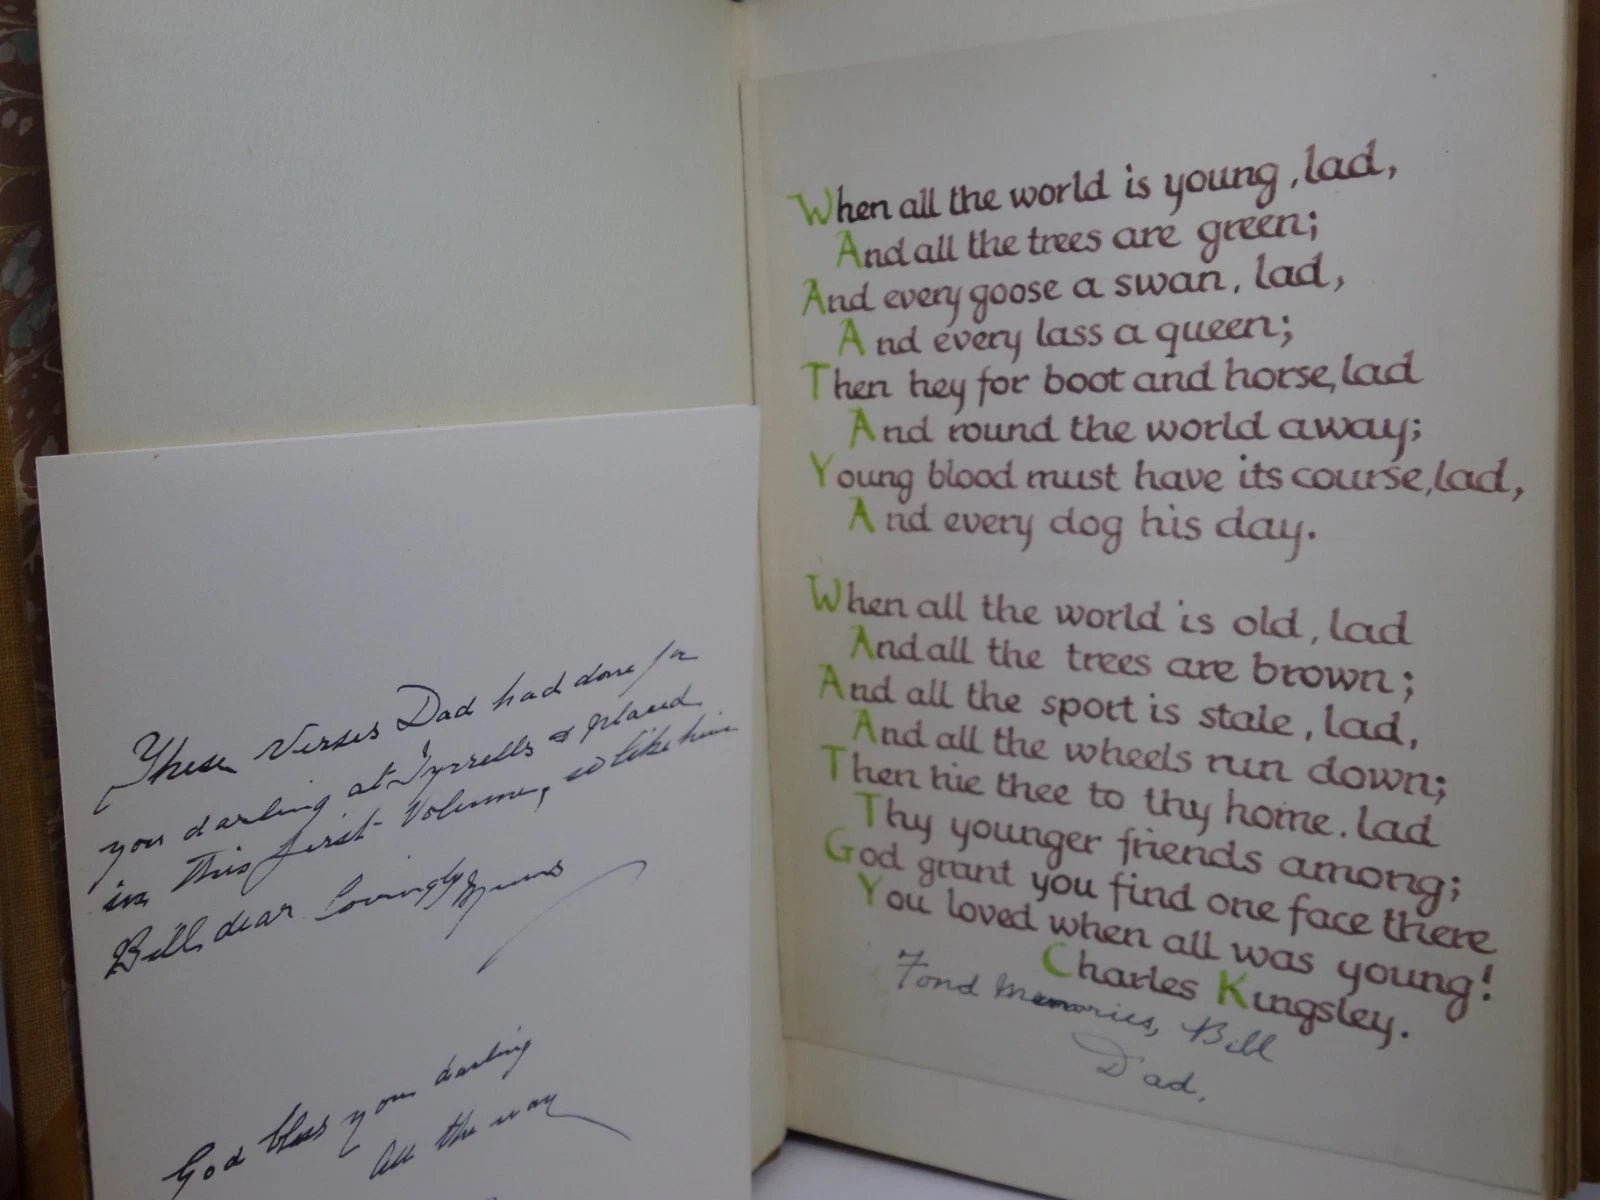 These Verses Dad had done for
you darling at Tyrrells & placed
in this first Volume, so like him
Bill dear Lovingly yours
God bless you darling
all the way
When all the world is young, lad,
And all the trees are green;
And every goose a swan, lad,
And every lass a queen;
Then hey for boot and horse, lad
And round the world away;
Young blood must have its course, lad,
And every dog his day.
When all the world is old, lad
And all the trees are brown;
And all the sport is stale, lad,
And all the wheels run down;
Then hie thee to thy home, lad
Thy younger friends among;
God grant you find one face there
You loved when all was young!
Charles Kingsley.
Fond Memories, Bill
Dad.